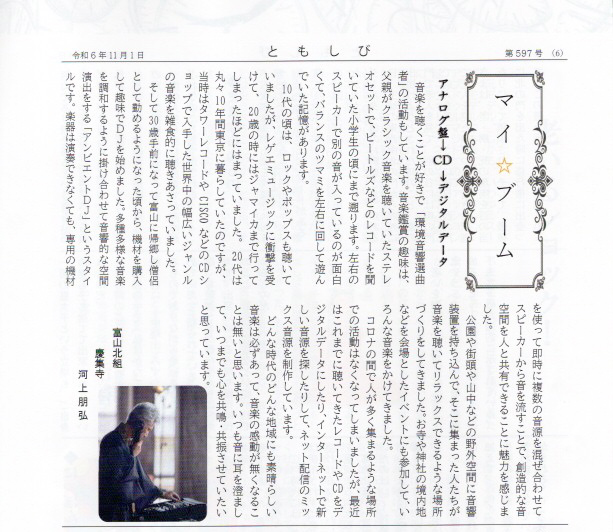 令和6年11月1日
ともしび
第597号 (6)
マイ☆ブーム
アナログ盤→CD→デジタルデータ
音楽を聴くことが好きで「環境音響選曲
者」の活動もしています。音楽鑑賞の趣味は、
父親がクラシック音楽を聴いていたステレ
オセットで、ビートルズなどのレコードを聞
いていた小学生の頃にまで遡ります。左右の
スピーカーで別の音が入っているのが面白
くて、バランスのツマミを左右に回して遊ん
でいた記憶があります。
10代の頃は、ロックやポップスも聴いて
いましたが、レゲエミュージックに衝撃を受
けて、20歳の時にはジャマイカまで行って
しまったほどにはまっていました。20代は
丸々10年間東京に暮らしていたのですが、
当時はタワーレコードやCISCOなどのCDシ
ョップで入手した世界中の幅広いジャンル
の音楽を雑食的に聴きあさっていました。
そして30歳手前になって富山に帰郷し僧侶
として勤めるようになった頃から、機材を購入
して趣味でDJを始めました。多種多様な音楽
を調和するように掛け合わせて音響的な空間
演出をする「アンビエントDJ」というスタイ
ルです。楽器は演奏できなくても、専用の機材
を使って即時に複数の音源を混ぜ合わせて
スピーカーから音を流すことで、創造的な音
空間を人と共有できることに魅力を感じま
した。
公園や街頭や山中などの野外空間に音響
装置を持ち込んで、そこに集まった人たちが
音楽を聴いてリラックスできるような場所
づくりをしてきました。お寺や神社の境内地
などを会場としたイベントにも参加して、い
ろんな音楽をかけてきました。
コロナの間で人が多く集まるような場所
での活動はなくなってしまいましたが、最近
はこれまでに聴いてきたレコードやCDをデ
ジタルデータにしたり、インターネットで新
しい音源を探したりして、ネット配信のミッ
クス音源を制作しています。
どんな時代のどんな地域にも素晴らしい
音楽は必ずあって、音楽の感動が無くなるこ
とは無いと思います。いつも音に耳を澄まし
て、いつまでも心を共鳴・共振させていたい
と思っています。
富山北組
慶集寺
河上朋弘